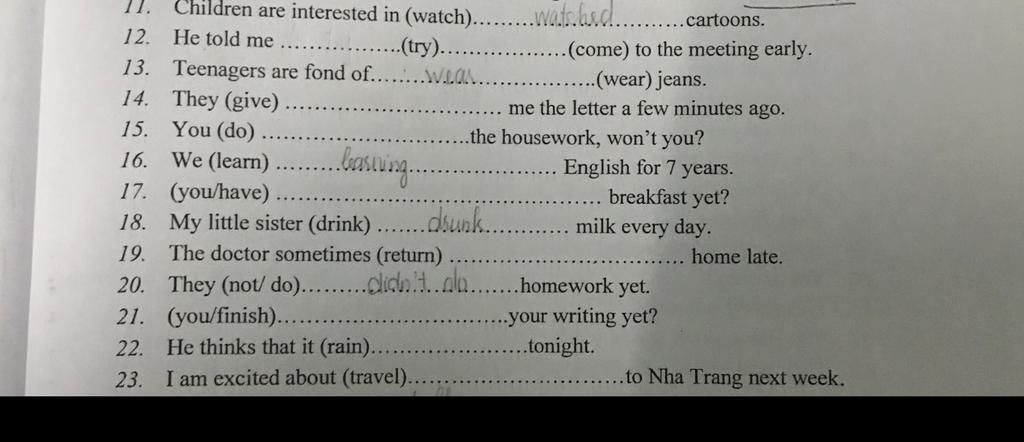 11. Children are interested in (watch).........watched............cartoons.
12. He told me ..................(try)...................(come) to the meeting early.
13. Teenagers are fond of........wear..................(wear) jeans.
14. They (give) ................................. me the letter a few minutes ago.
15. You (do) ................................the housework, won't you?
16. We (learn) ..........learning...................... English for 7 years.
17. (you/have) .................................................. breakfast yet?
18. My little sister (drink) .......drunk............. milk every day.
19. The doctor sometimes (return) .................................... home late.
20. They (not/ do).........didn't..do.......homework yet.
21. (you/finish)...................................your writing yet?
22. He thinks that it (rain)........................tonight.
23. I am excited about (travel).................................to Nha Trang next week.